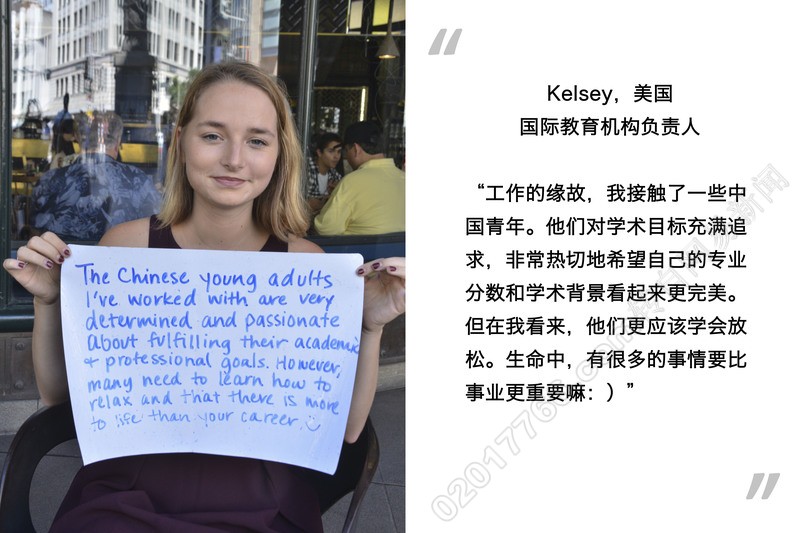 The Chinese young adults
I've worked with are very
determined and passionate
about fulfilling their academic
& professional goals. However,
many need to learn how to
relax and that there is more
to life than your career. :)
“
Kelsey，美国
国际教育机构负责人
“工作的缘故，我接触了一些中
国青年。他们对学术目标充满追
求，非常热切地希望自己的专业
分数和学术背景看起来更完美。
但在我看来，他们更应该学会放
松。生命中，有很多的事情要比
事业更重要嘛：）”
”